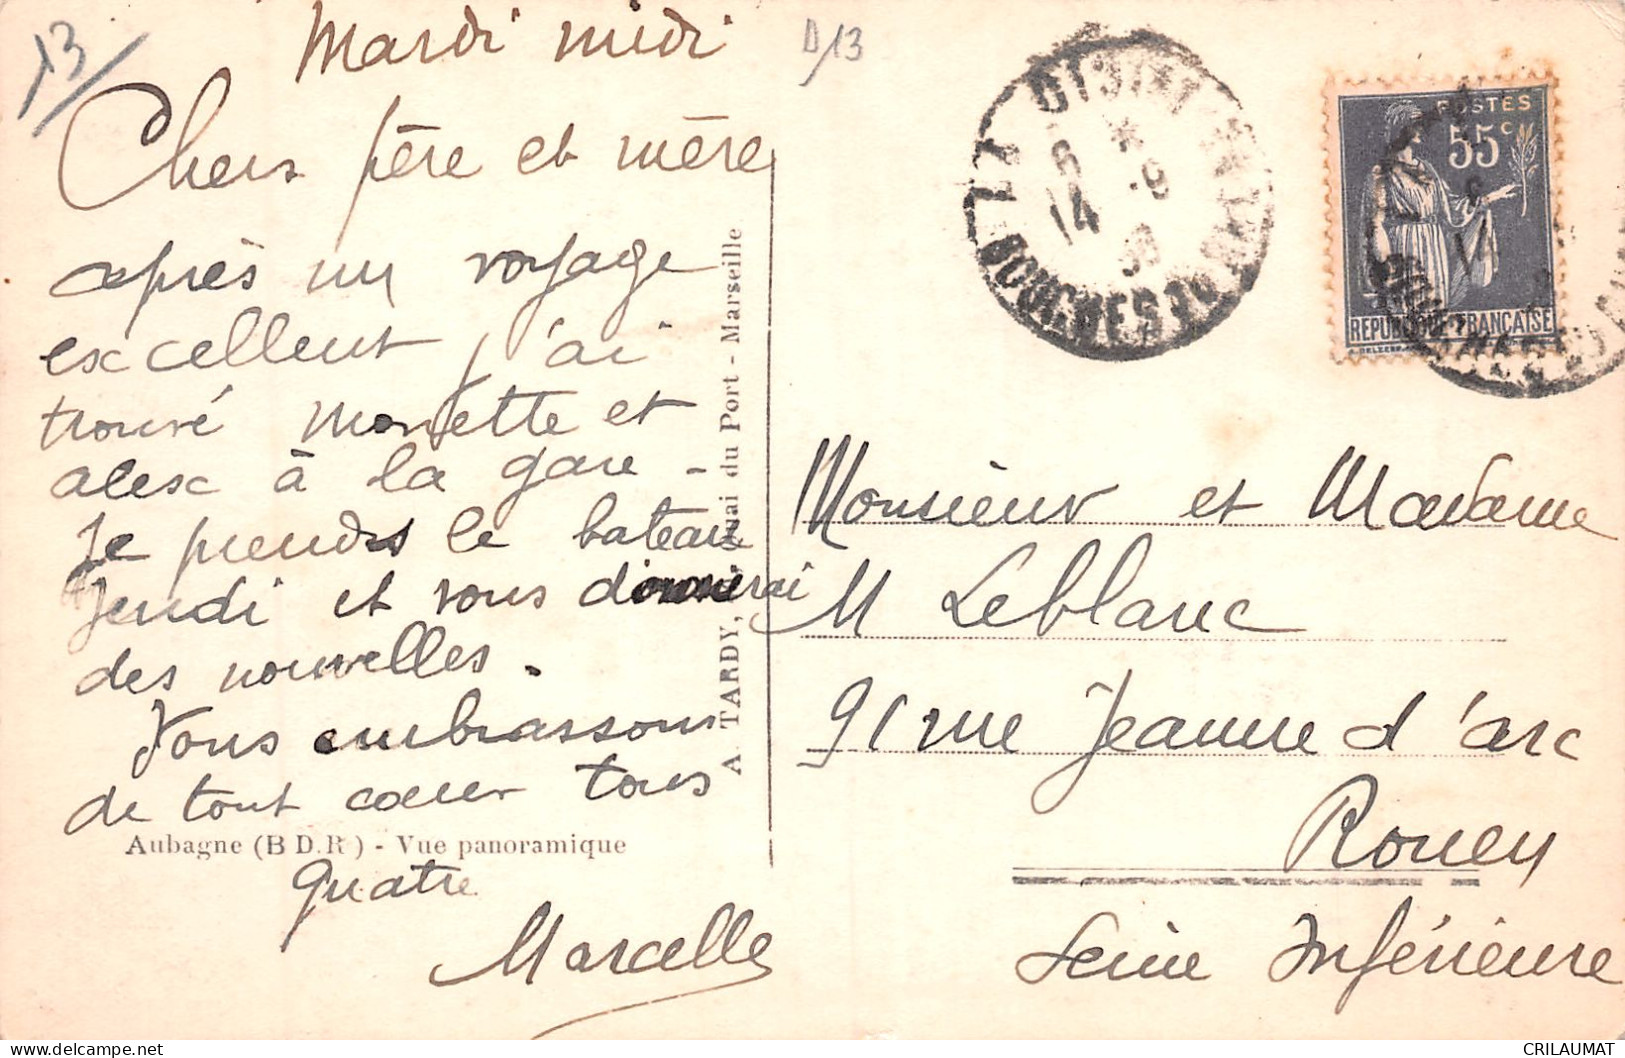 13
Mardi midi
D/13
Chers père et mère
après un voyage
excellent j'ai
trouvé Monette et
alex à la gare -
Je prends le bateau
Jeudi et vous donnerai
des nouvelles.
Vous embrassons
de tout coeur tous
Aubagne (B D.R) - Vue panoramique
quatre
Marcelle
A TARDY, Quai du Port - Marseille
LA CIOTAT
6 *
14 -9
BOUCHES DU
POSTES
55c
REPUBLIQUE FRANCAISE
Monsieur et Madame
M Leblanc
91 rue Jeanne d'arc
Rouen
Seine Inférieure
CRILAUMAT